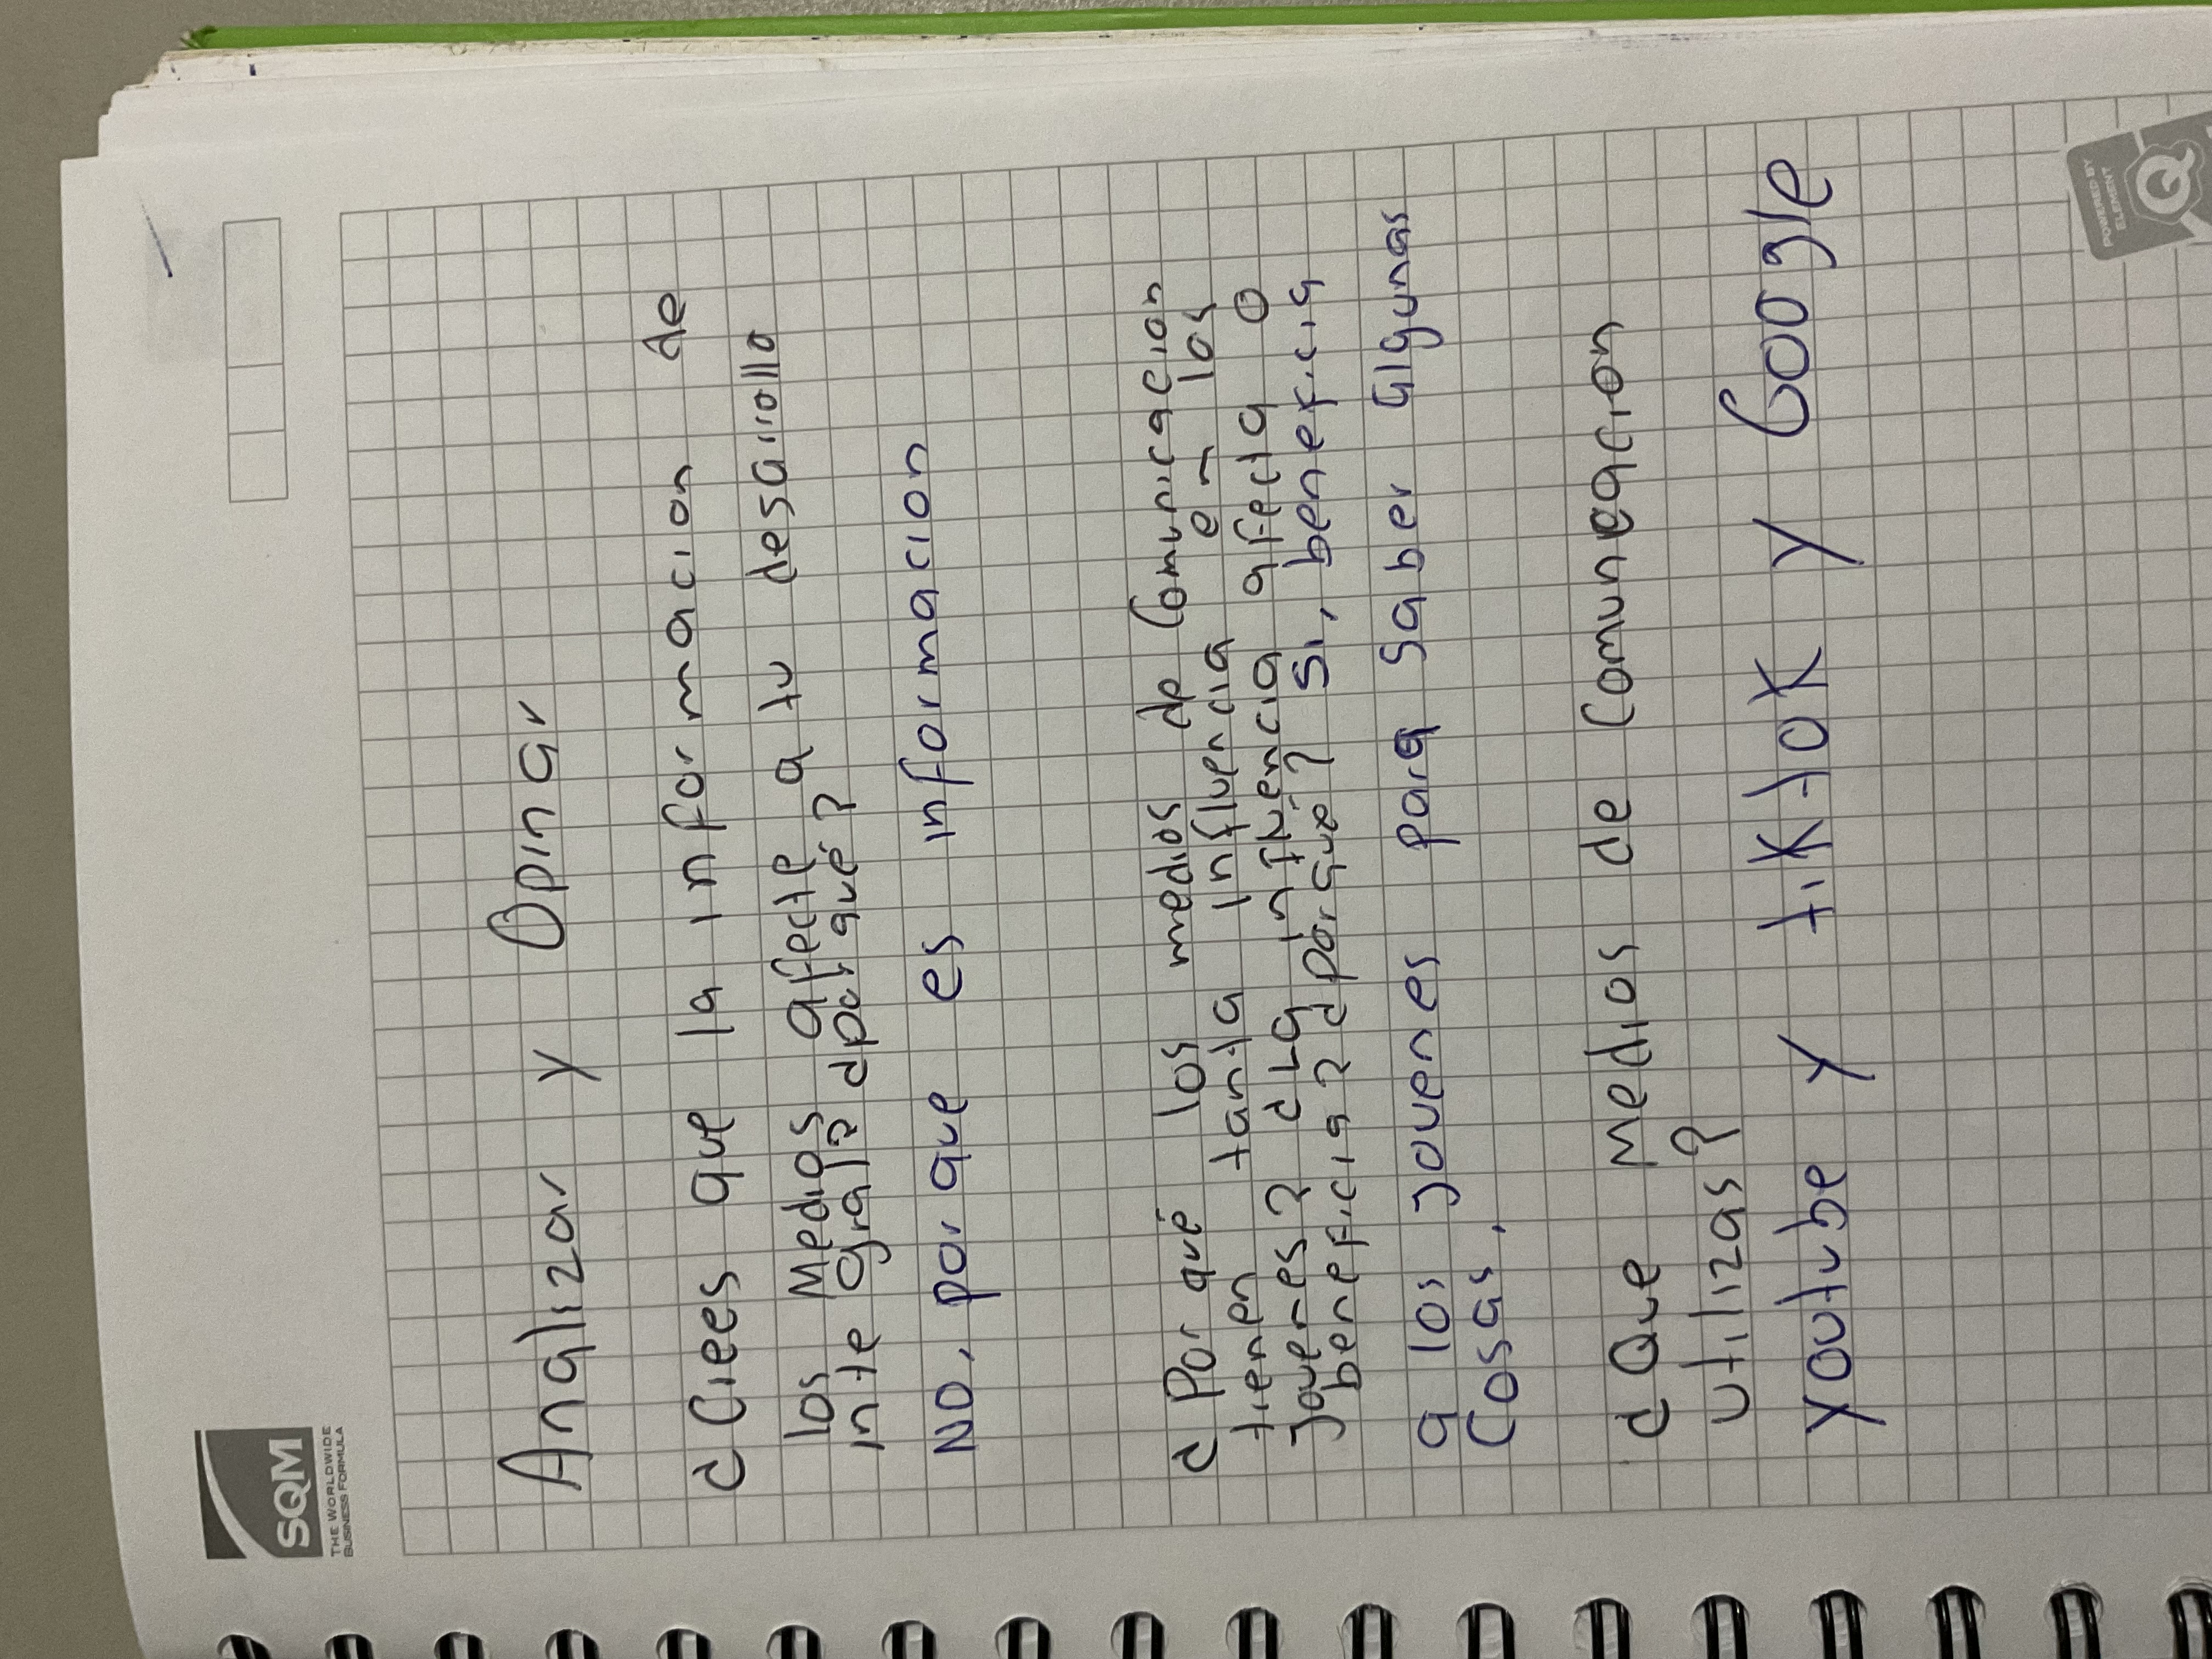 SQM
THE WORLDWIDE
BUSINESS FORMULA
Analizar y Opinar
¿Crees que la informacion de
los Medios afecte a tu desarrollo
integral? ¿por qué?
No, por que es informacion
¿Por qué los medios de Comunicacion
tienen tanta influencia en los
Jovenes? ¿La influencia afecta o
beneficia? ¿por qué? Si, beneficia
a los jovenes para saber algunas
Cosas.
¿Que Medios de Comunicacion
utilizas?
youtube y tiktok y Google
POWERED BY
ELEMENT
Q